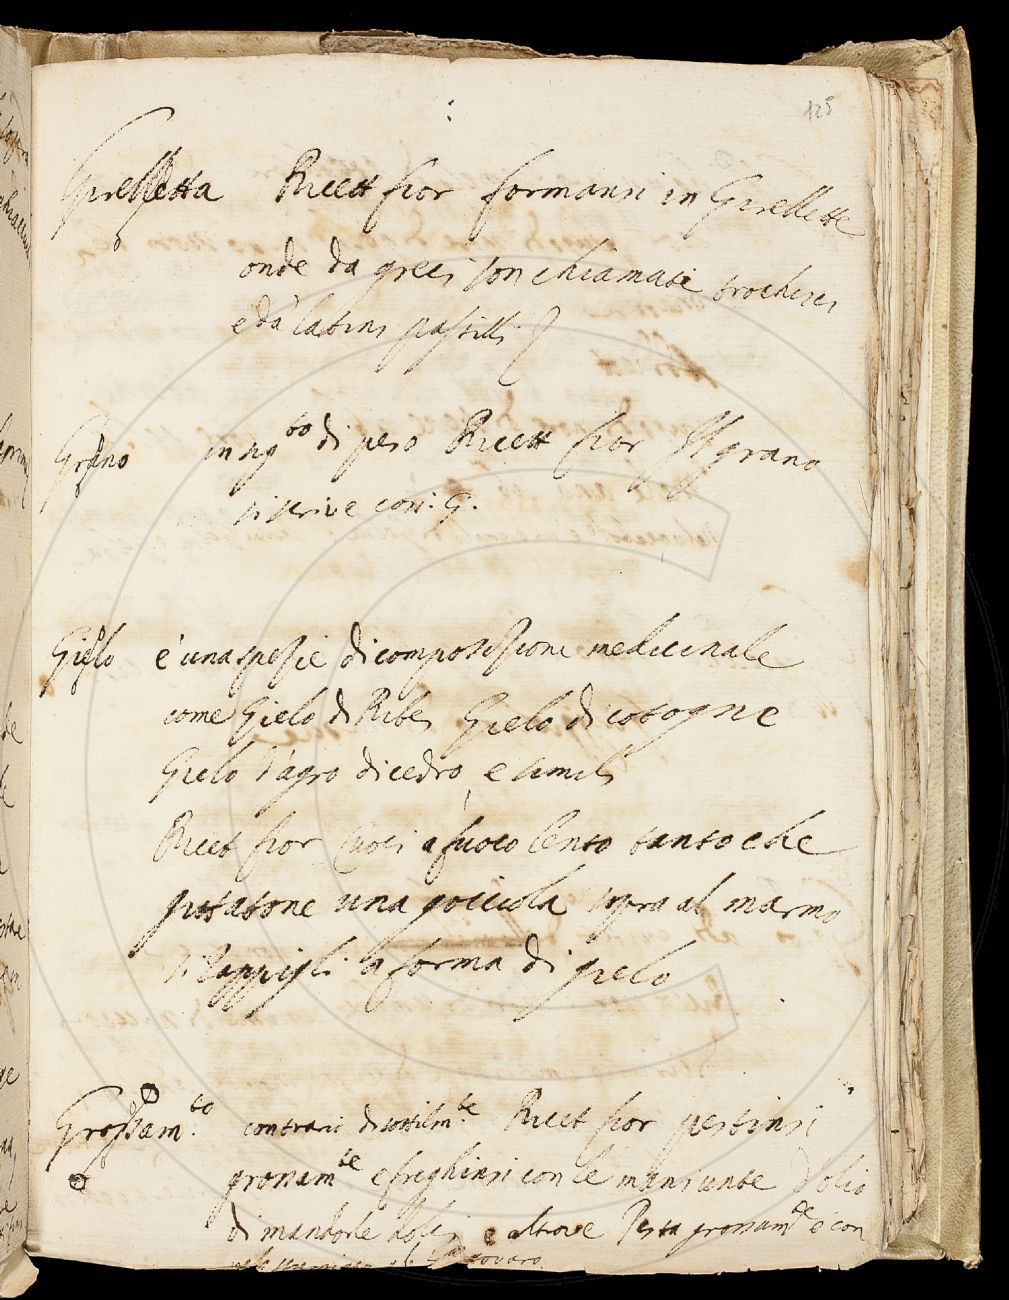 125
Girelletta Ricett fior formansi in Girellette
onde da greci son chiamati trochisci
e da latini pastilli
Grano in sig.to di peso Ricett fior Il grano
si scrive cosi: G.
Gielo è una spezie di composizione medicinale
come Gielo di Ribes Gielo di cotogne
Gielo d'agro di cedro, e simili
Ricet fior Cuoci a fuoco lento tanto che
gittatone una gocciola sopra al marmo
si Rappigli a forma di gielo
Grossam.te contrario di sottilm.te Ricet fior pestinsi
grossam.te e freghinsi con le mani unte d'olio
di mandorle dolci e altrove Pesta grossam.te e con